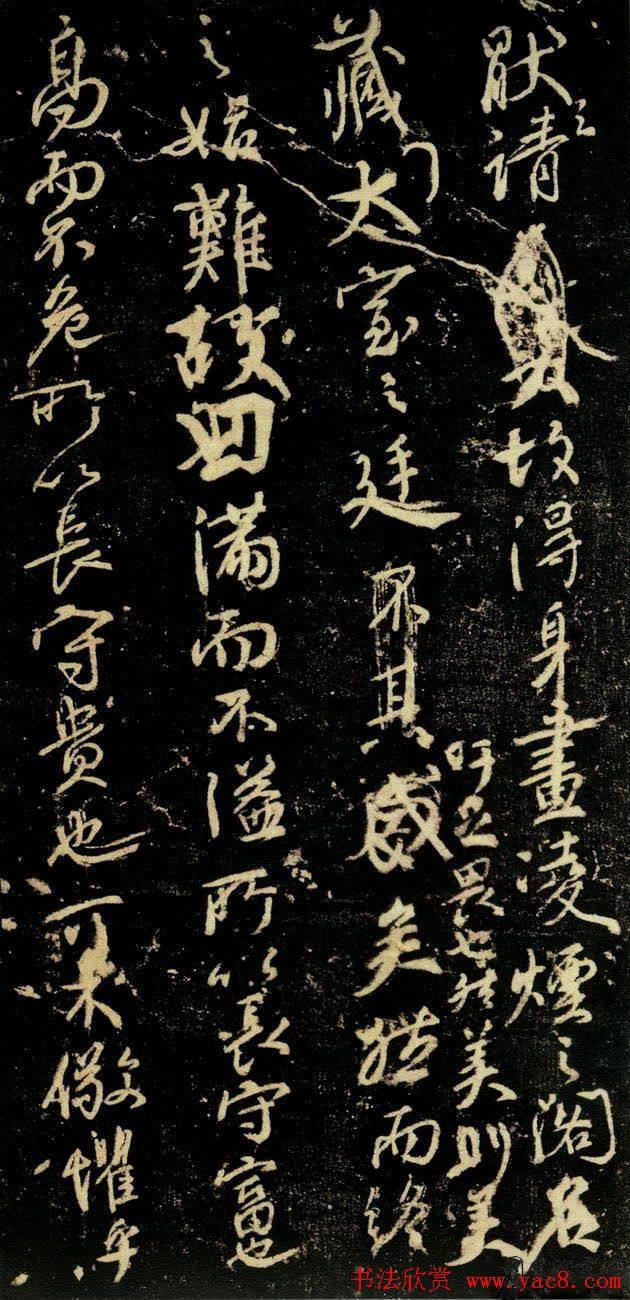 猒之請故得身畫凌煙之閣名
藏太室之廷不其盛矣然而終
吁足畏也然美則美
之始難故曰滿而不溢所以長守富也
高而不危所以長守貴也可不儆懼乎
书法欣赏 www.yac8.com